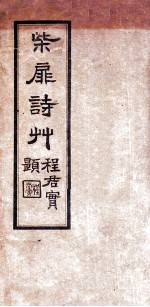 柴扉詩艸
程君實
題